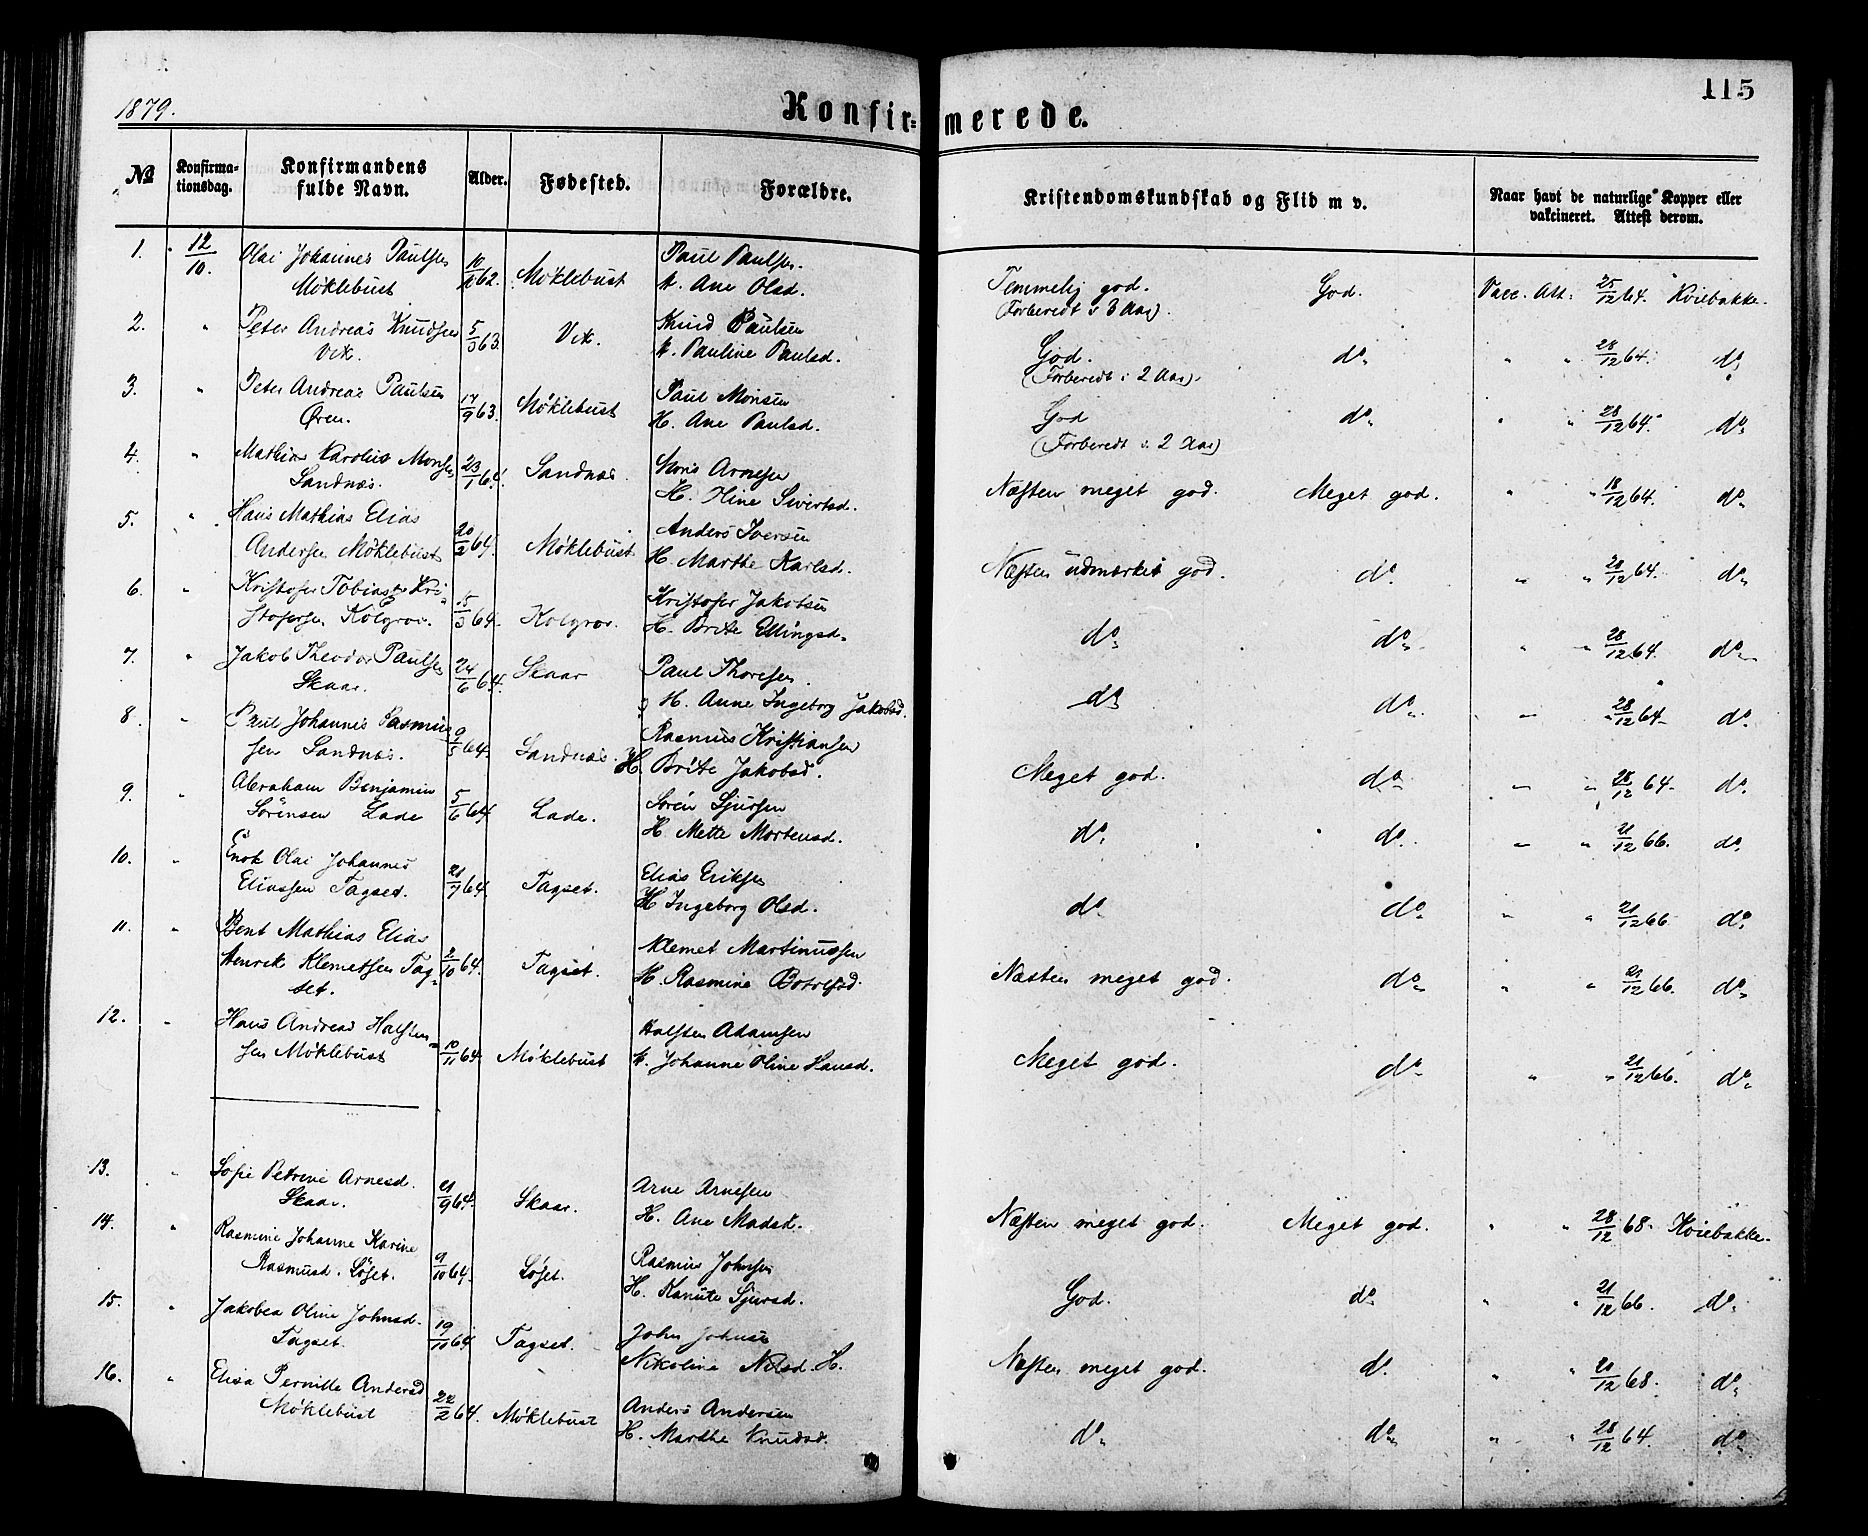 1879.
Konfir=merede.
115
№
Konfirma-
tionsdag.
Konfirmandens
fulde Navn.
Alder.
Fødested.
Forældre.
Kristendomskundskab og Flid m v.
Naar havt de naturlige Kopper eller
vakcineret. Attest derom.
1. 12/10. Olai Johannes Paulsen
Møklebust 62. Møklebust
Paul Paulsen.
H. Ane Olsd.
Temmelig god. God. Vacc. Att: 64. Kviebakke.
(Forberedt i 3 Aar).
2. " Peter Andreas Knudsen
Vik. 5/3 63. Vik.
Knud Paulsen
H. Pauline Paulsd.
God. do " " 28/12 64. do
(Forberedt i 2 Aar).
3. " Peter Andreas Paulsen
Øren. 17/9 63. Møklebust
Paul Monsen
H. Ane Paulsd.
God do " " 28/12 64. do
(Forberedt i 2 Aar)
4. " Mathias Karolius Monsen
Sandnæs. 23/1 64. Sandnæs.
Mons Arnesen
H. Oline Sivertsd.
Næsten meget god. Meget god. " " 18/12 64. do
5. " Hans Mathias Elias
Andersen Møklebust 20/2 64. Møklebust
Anders Iversen
H. Marthe Karlsd.
Næsten udmærket god. do " " 28/12 64. do
6. " Kristofer Tobias Kri-
stofersen Kolgrov. 15/3 64. Kolgrov.
Kristofer Jakobsen
H. Brite Ellingsd.
do do " " 28/12 64. do
7. " Jakob Theodor Paulsen
Skaar. 24/6 64. Skaar
Paul Thoresen.
H. Anne Ingeborg Jakobsd.
do do " " 28/12 64. do
8. " Paul Johannes Rasmus-
sen Sandnæs. 9/5 64. Sandnæs.
Rasmus Kristiansen
H. Brite Jakobsd.
Meget god. do " " 28/12 64. do
9. " Abraham Benjamin
Sørensen Lade 5/6 64. Lade.
Søren Sjursen
H Mette Mortensd.
do do " " 21/12 66. do
10. " Enok Olai Johannes
Eliassen Tagset. 21/7 64. Tagset.
Elias Eriksen
H Ingeborg Olsd.
do do " " 21/12 66. do
11. " Bent Mathias Elias
Henrik Klemetsen Tag-
set. 2/10 64. Tagset.
Klemet Martinussen
H. Rasmine Botolfsd.
Næsten meget god. do " " 21/12 66. do
12. " Hans Andreas Halsten-
sen Møklebust 10/11 64. Møklebust
Halsten Adamsen
H. Johanne Oline Hansd.
Meget god. do " " 21/12 66. do
13. " Sofie Petrine Arnesd.
Skaar. 21/9 64. Skaar.
Arne Arnesen
H. Ane Madsd.
Næsten meget god. Meget god. " " 28/12 68. Kviebakke.
14. " Rasmine Johanne Karine
Rasmusd. Løset. 9/10 64. Løset.
Rasmus Johnsen
H. Kanute Sjursd.
God. do " " 21/12 66. do
15. " Jakobea Oline Johnsd.
Tagset. 19/10 64 Tagset.
John Johnsen
Nikoline Nilsd. H.
Næsten meget god. do " " 12 68. do
16. " Elisa Pernille Andersd
Møklebust 22/2 64. Møklebust
Anders Andersen
H. Marthe Knudsd.
do do " " 28/12 64. do